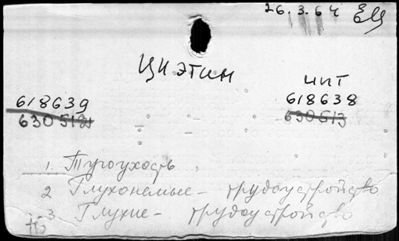 26.3.64 ЕЦ
ЦИЭТИН
ЧИТ
618639 618638
630512 630513
1. Тугоухость
2 Глухонемые - трудоустройство
3 Глухие - трудоустройство